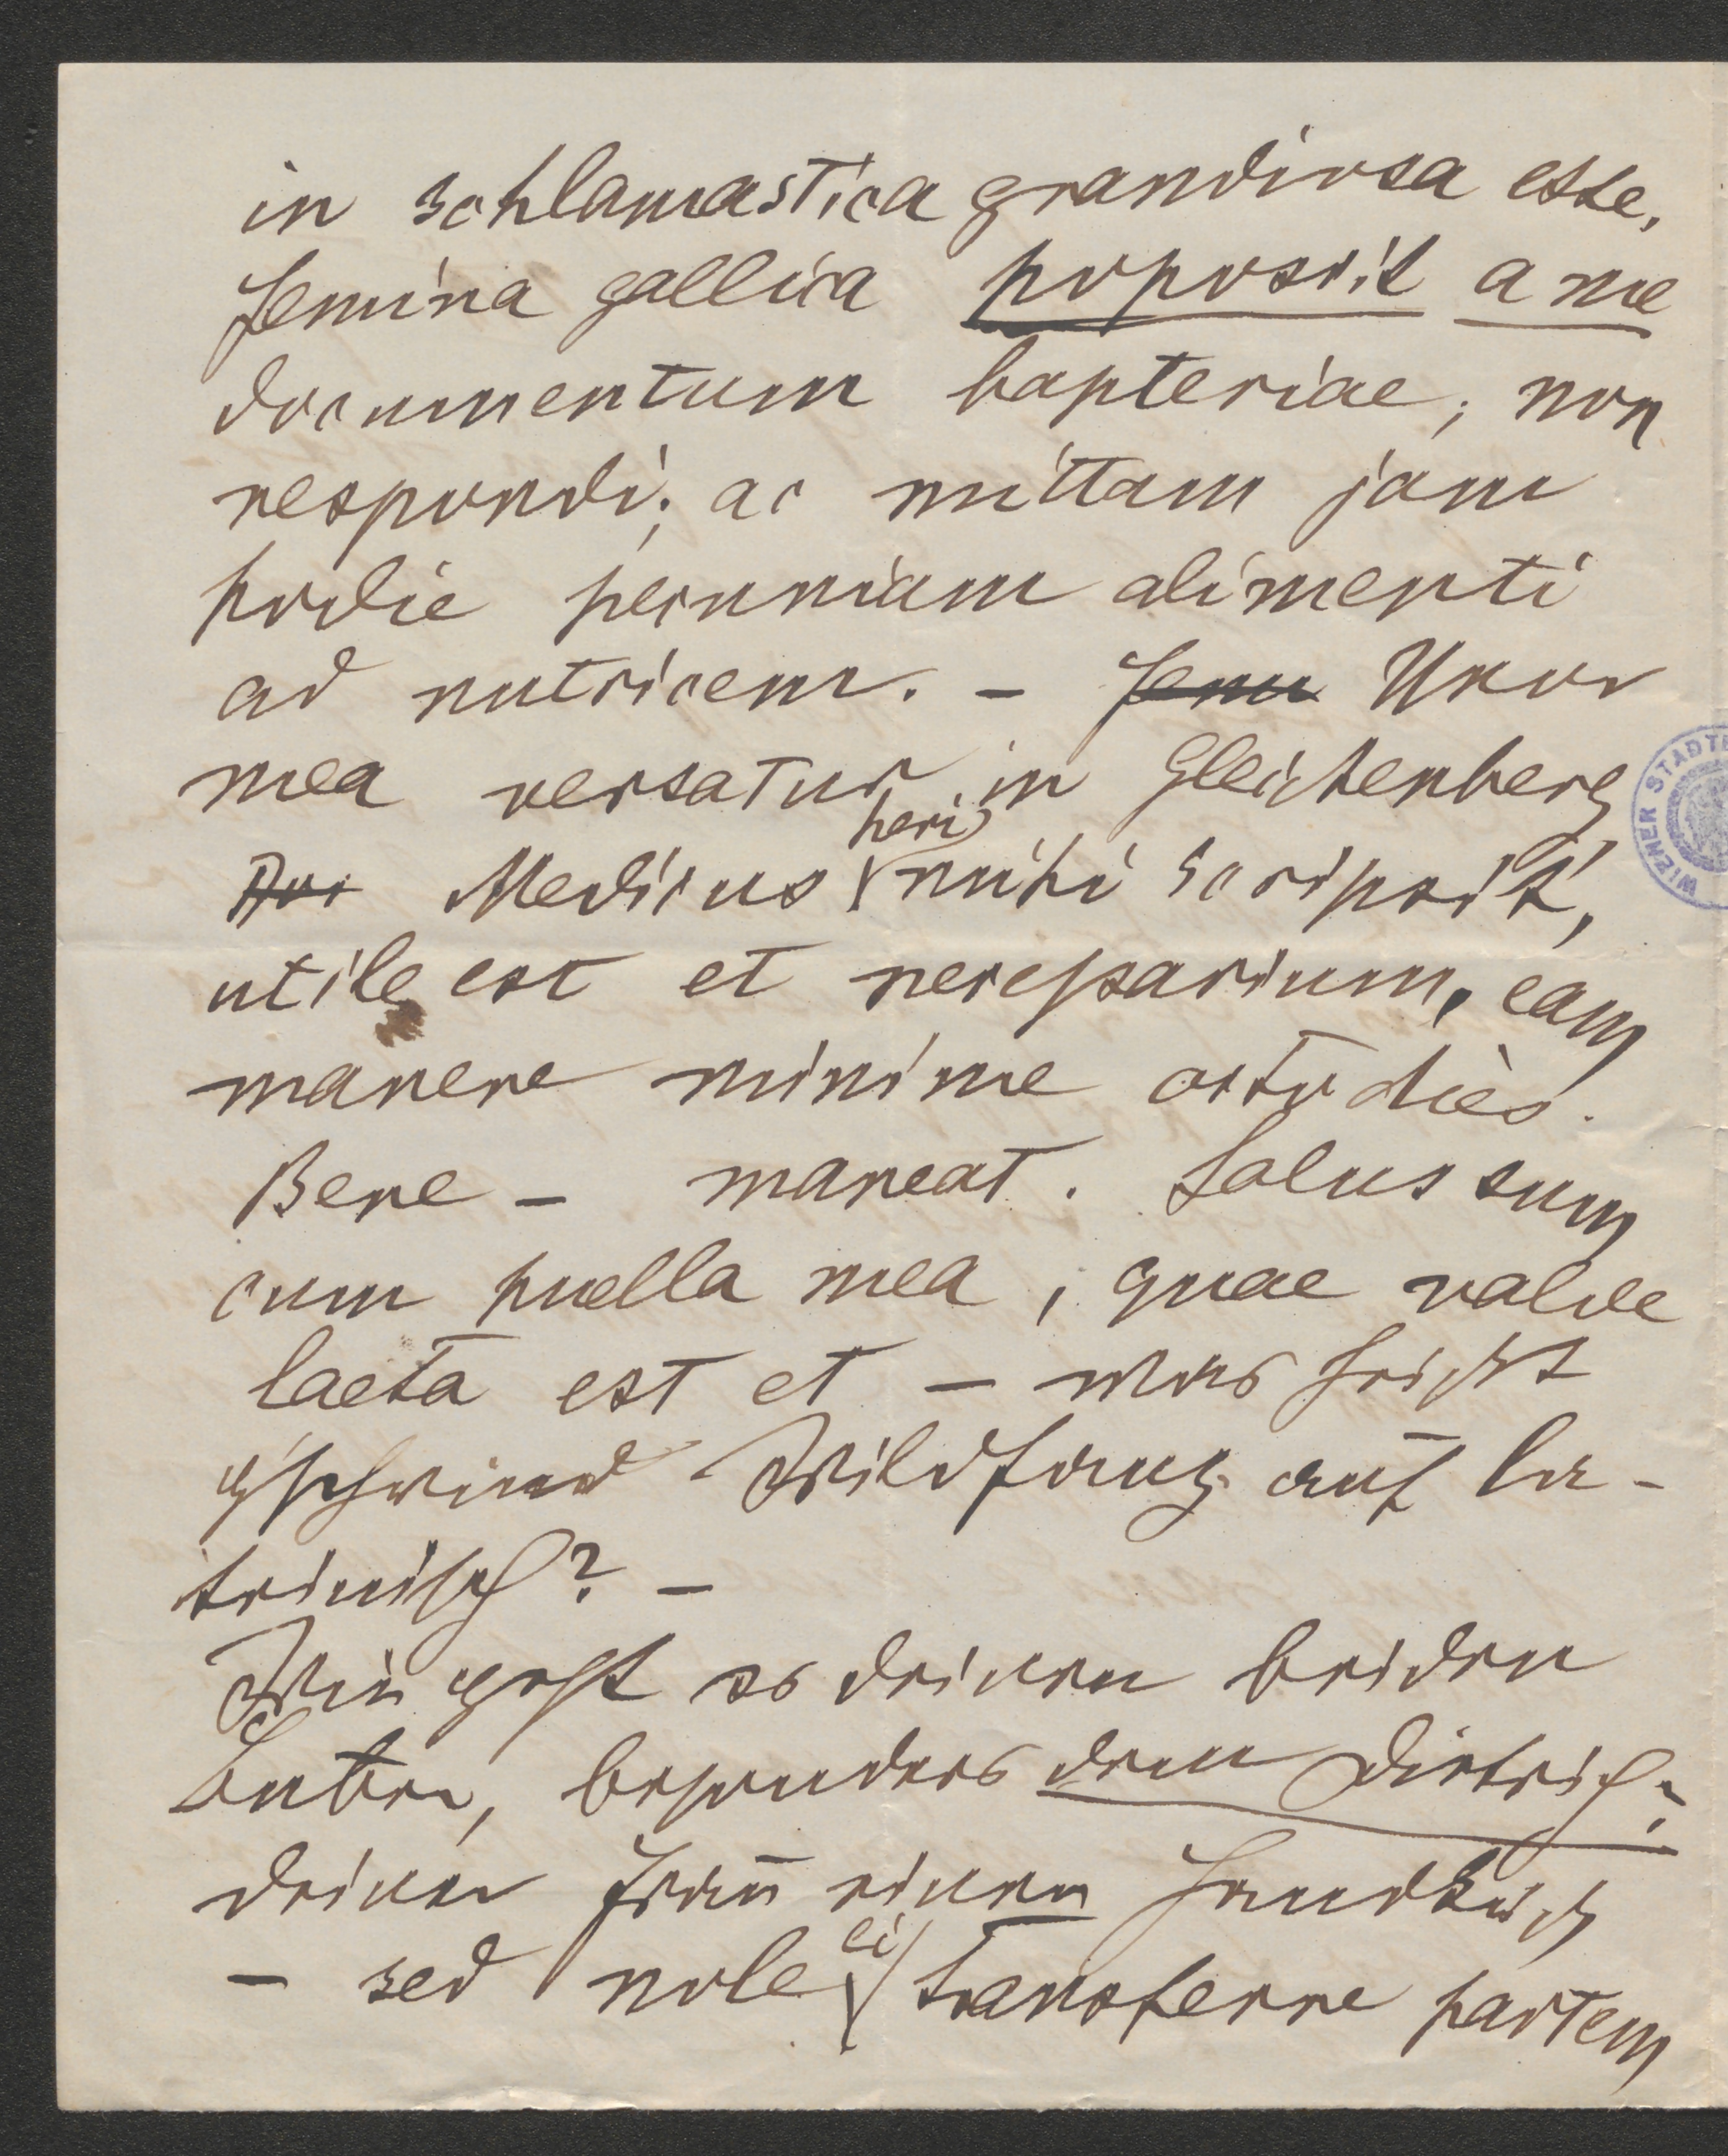 in schlamastica grandiosa esse,
femina gallica poposcit a me
documentum bapteriae, non
respondi; ac mittam jam
hodie pecuniam alimenti
ad nutricem. – Femi Uxor
mea versatur in Gleichenberg
Medicus heri mihi scripsit,
utile est et necessarium, eam
manere minime octo dies.
Bene – maneat. Solus sum
cum puella mea, quae valde
laeta est et – was heißt
g'schwind Wildfang auf la-
teinisch? –
Wie geht es deinen beiden
Buben, besonders dem Dietrich?
deiner Frau einen Handkuß
– sed nole ei transferre partem
WIENER STADT